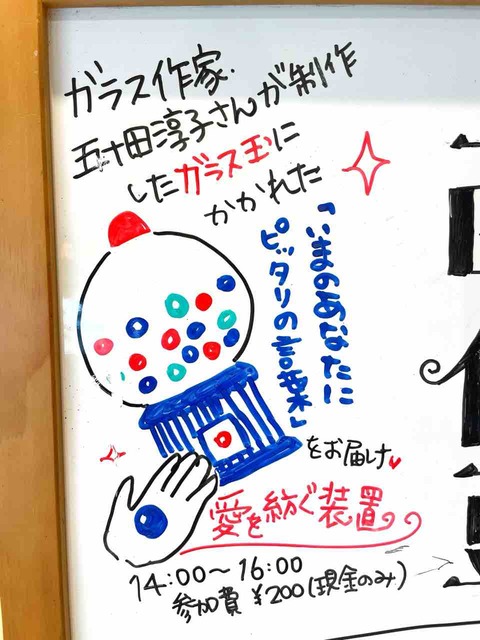 ガラス作家.
五十田淳子さんが制作
したガラス玉に
かかれた
「いまのあなたに
ピッタリの言葉」
をお届け
愛を紡ぐ装置
14:00〜16:00
参加費 ¥200(現金のみ)